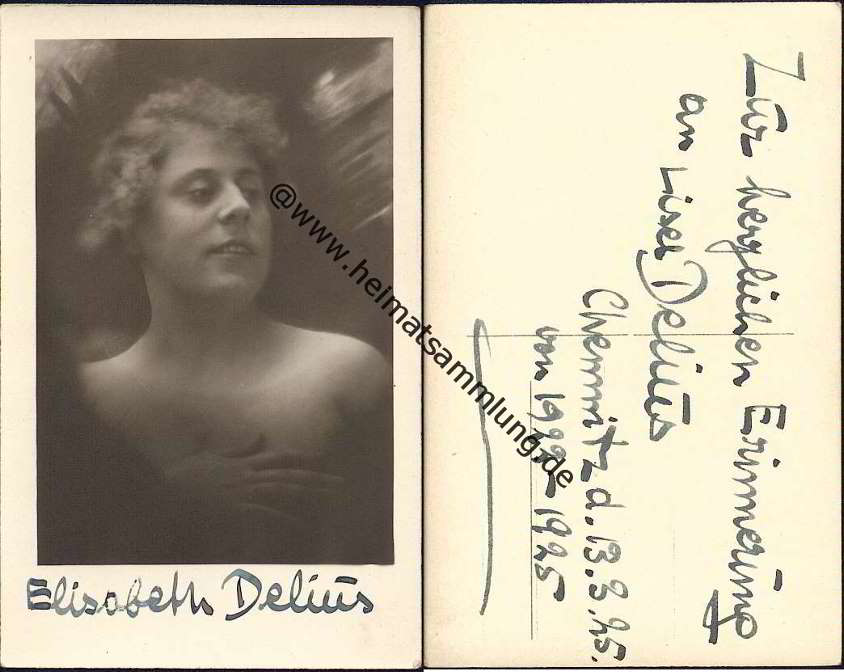 Elisabeth Delius
@www.heimatsammlung.de
Zur herzlichen Erinnerung
an Lisel Delius
Chemnitz d. 13.9.25.
von 1922-1925